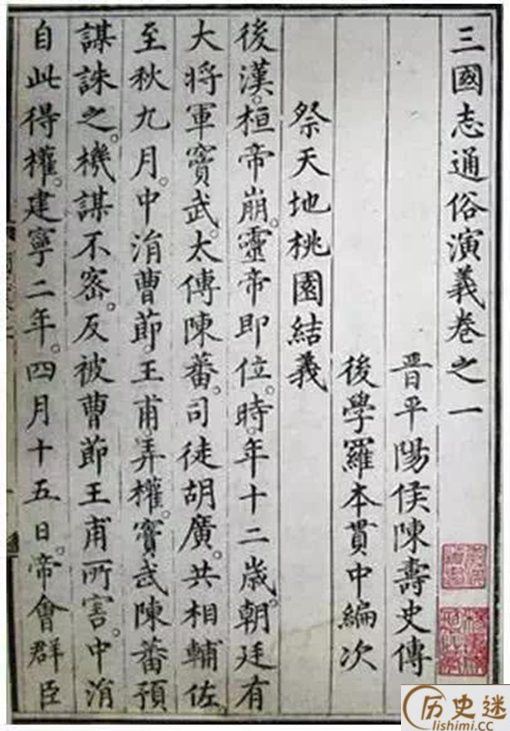 三國志通俗演義卷之一
晋平陽侯陳壽史傳
後學羅本貫中編次
祭天地桃園結義
後漢。桓帝崩。靈帝即位。時年十二歲。朝廷有
大將軍竇武。太傅陳蕃。司徒胡廣。共相輔佐
至秋九月。中涓曹節王甫弄權。竇武陳蕃預
謀誅之。機謀不密。反被曹節王甫所害。中涓
自此得權。建寧二年。四月十五日。帝會群臣
历史迷
lishimi.cc